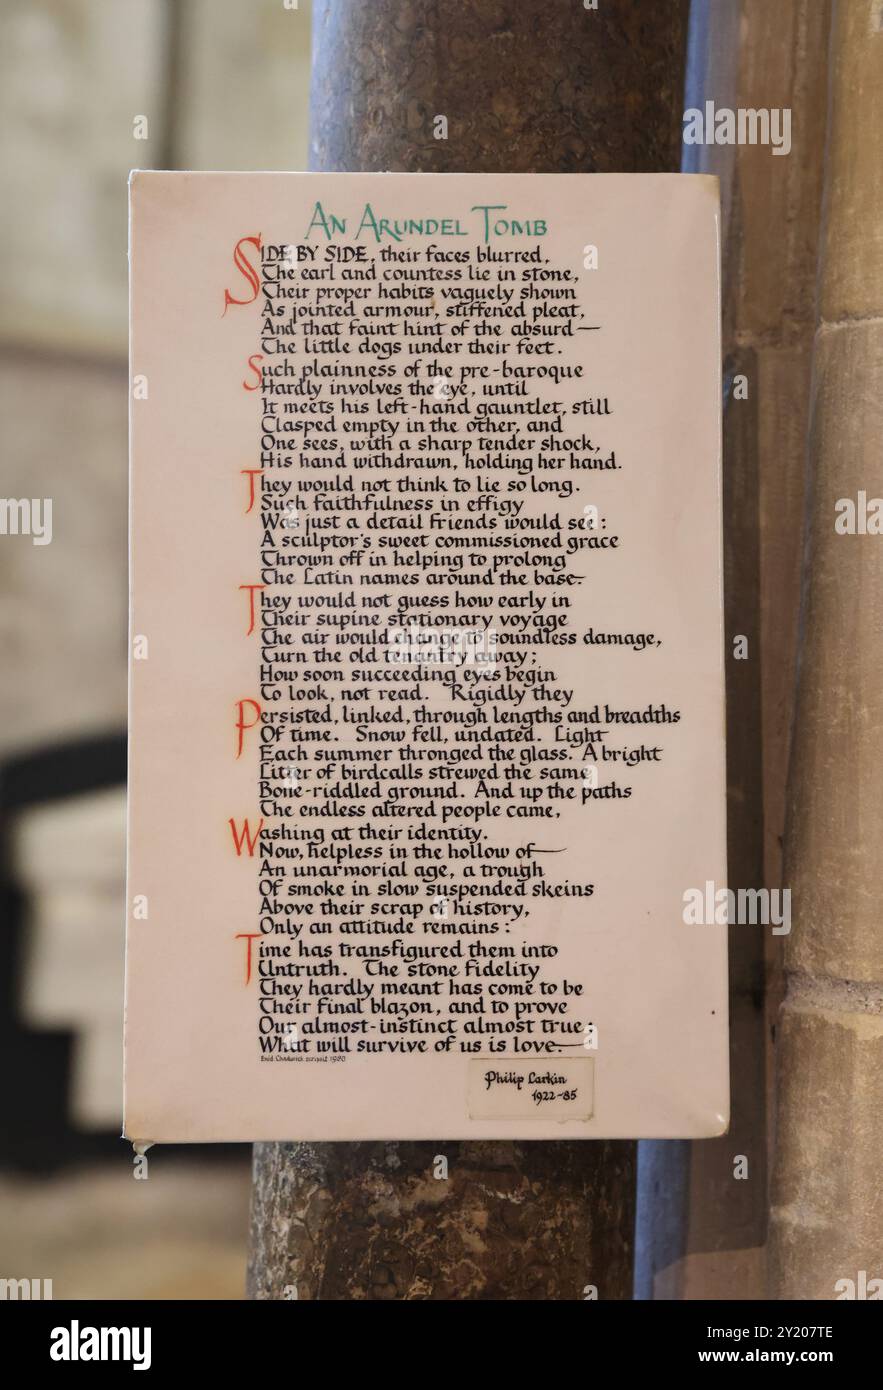 AN ARUNDEL TOMB
SIDE BY SIDE, their faces blurred,
The earl and countess lie in stone,
Their proper habits vaguely shown
As jointed armour, stiffened pleat,
And that faint hint of the absurd—
The little dogs under their feet.
Such plainness of the pre-baroque
Hardly involves the eye, until
It meets his left-hand gauntlet, still
Clasped empty in the other, and
One sees, with a sharp tender shock,
His hand withdrawn, holding her hand.
They would not think to lie so long.
Such faithfulness in effigy
Was just a detail friends would see:
A sculptor's sweet commissioned grace
Thrown off in helping to prolong
The Latin names around the base.
They would not guess how early in
Their supine stationary voyage
The air would change to soundless damage,
Turn the old tenantry away;
How soon succeeding eyes begin
To look, not read. Rigidly they
Persisted, linked, through lengths and breadths
Of time. Snow fell, undated. Light
Each summer thronged the glass. A bright
Litter of birdcalls strewed the same
Bone-riddled ground. And up the paths
The endless altered people came,
Washing at their identity.
Now, helpless in the hollow of—
An unarmorial age, a trough
Of smoke in slow suspended skeins
Above their scrap of history,
Only an attitude remains:
Time has transfigured them into
Untruth. The stone fidelity
They hardly meant has come to be
Their final blazon, and to prove
Our almost-instinct almost true:
What will survive of us is love.—
Enid Chadwick scripsit 1980
Philip Larkin
1922-85
alamy
alamy
Image ID: 2Y207TE
www.alamy.com